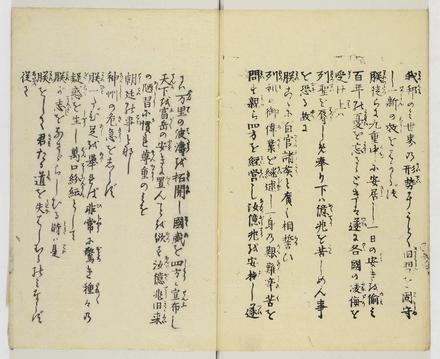 我邦のみ世界の形勢にうとく旧習を固守
し一新の效をはからず
朕徒らに九重中に安居し一日の安きを偸み
百年の憂を忘るゝときは遂に各国の凌侮を
受け上は
列聖を辱しめ奉り下は億兆を苦しめん事
を恐る故に
朕こゝに百官諸侯と広く相誓ひ
列祖の御偉業を継述し一身の艱難辛苦を
問ず親ら四方を経営し汝億兆を安撫し遂
には万里の波濤を拓開し国威を四方に宣布し
天下を富岳の安きに置んことを欲す汝億兆旧来
の陋習に慣れ尊重のみを
朝廷の事となし
神州の危急をしらず
朕一たび足を挙れば非常に驚き種々の
疑惑を生じ萬口紛紜として
朕が志をなさゞらしむる時は是
朕をして君たる道を失はしむるのみならず
従て